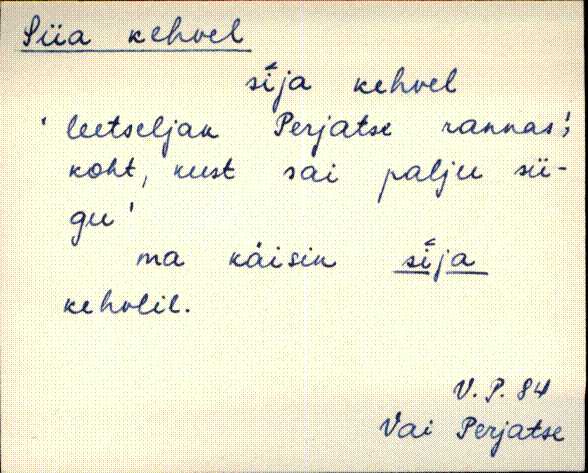 Siia kehvel
síja kehvel
'leetseljak Perjatse rannas';
koht, kust sai palju sii-
gu'
ma käisin síja
kehvlil.
V. P. 84
Vai Perjatse